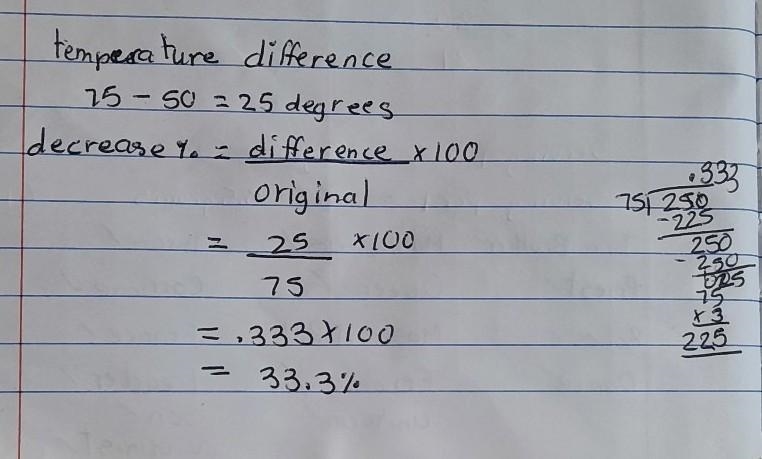 temperature difference
75 - 50 = 25 degrees
decrease % = difference × 100
original
= 25 × 100
75
= .333 × 100
= 33.3%
.333
75 250
- 225
250
- 250
025
75
× 3
225